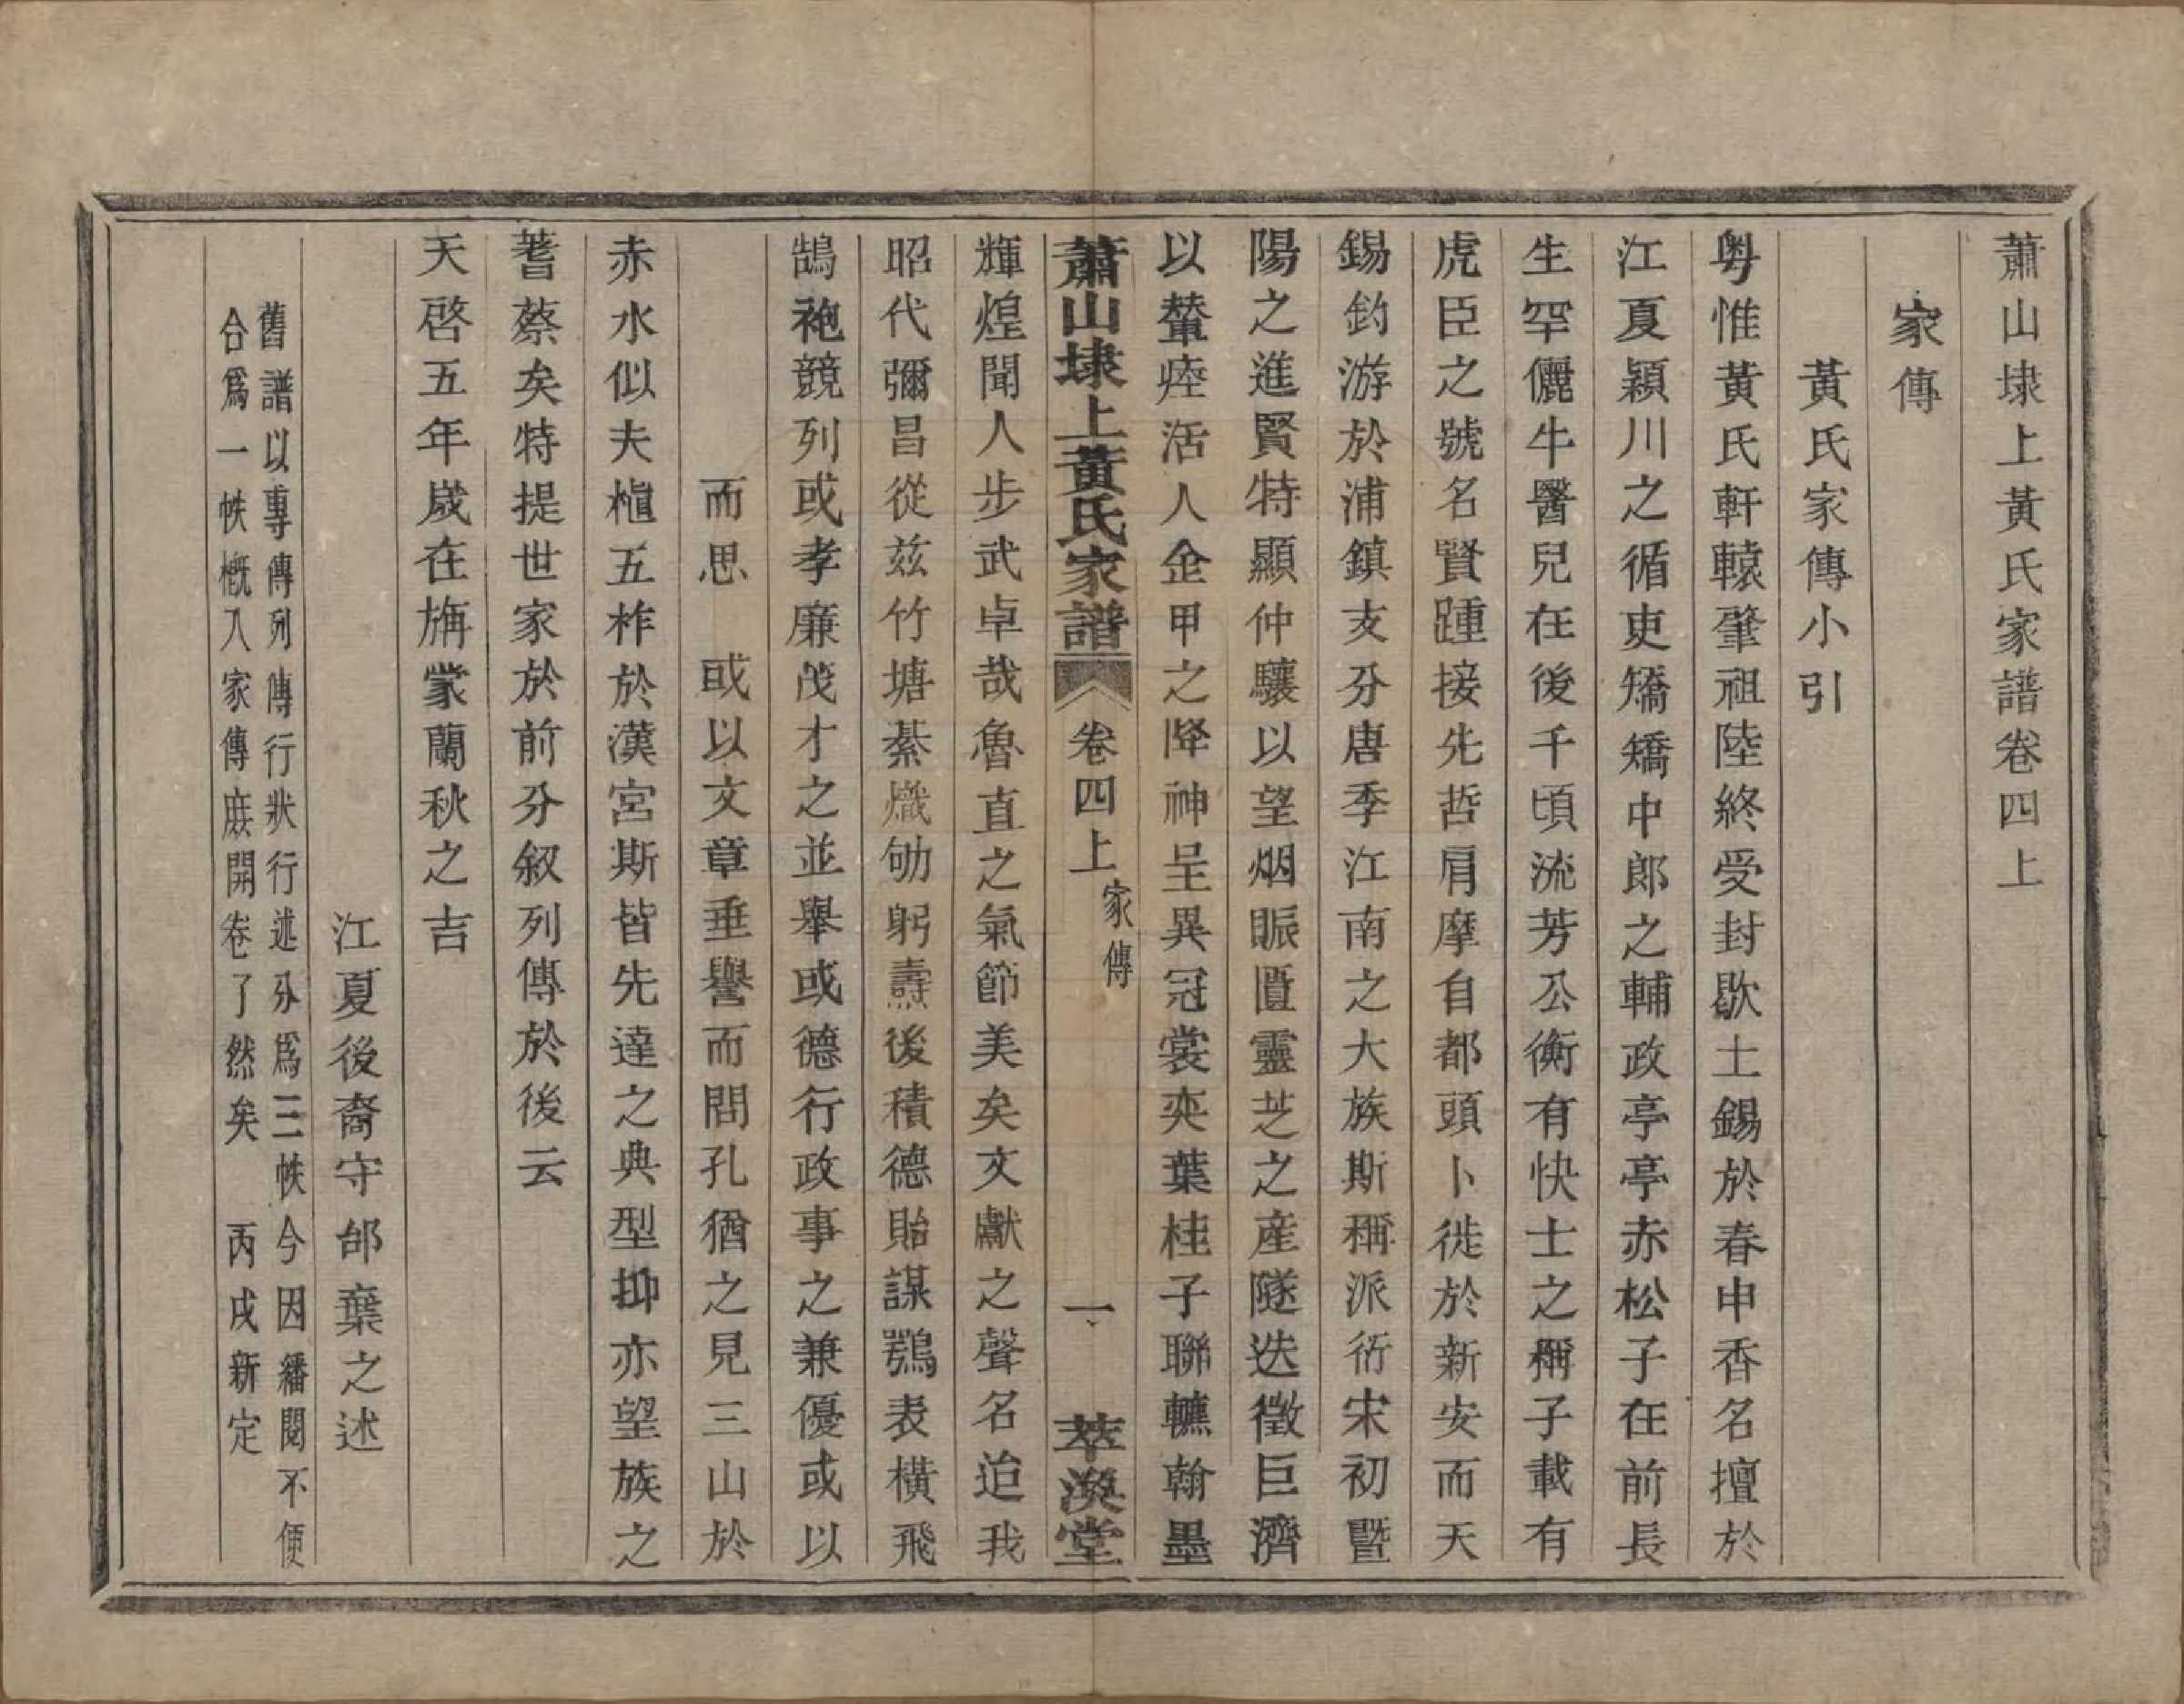 蕭山埭上黃氏家譜卷四上
家傳
黃氏家傳小引
粵惟黃氏軒轅肇祖陸終受封歇土錫於春申香名擅於
江夏穎川之循吏矯矯中郎之輔政亭亭赤松子在前長
生罕儷牛醫兒在後千頃流芳公衡有快士之稱子載有
虎臣之號名賢踵接先哲肩摩自都頭卜徙於新安而天
錫釣游於浦鎮支分唐季江南之大族斯稱派衍宋初暨
陽之進賢特顯仲驤以望烟賑匱靈芝之產隧迭徵巨濟
以輦瘞活人金甲之降神呈異冠裳奕葉桂子聯鑣翰墨
蕭山埭上黃氏家譜 卷四上 家傳 一 萃渙堂
輝煌聞人步武卓哉魯直之氣節美矣文獻之聲名迨我
昭代彌昌從茲竹塘綦熾劬躬燾後積德貽謀鶚表橫飛
鵠袍競列或孝廉茂才之並舉或德行政事之兼優或以
而思 或以文章垂譽而問孔猶之見三山於
赤水似夫植五柞於漢宮斯皆先達之典型抑亦望族之
蓍蔡矣特提世家於前分叙列傳於後云
天啓五年歲在旃蒙蘭秋之吉
江夏後裔守邰葉之述
舊譜以專傳列傳行狀行述分爲三帙今因繙閱不便
合爲一帙概入家傳庶開卷了然矣 丙戌新定